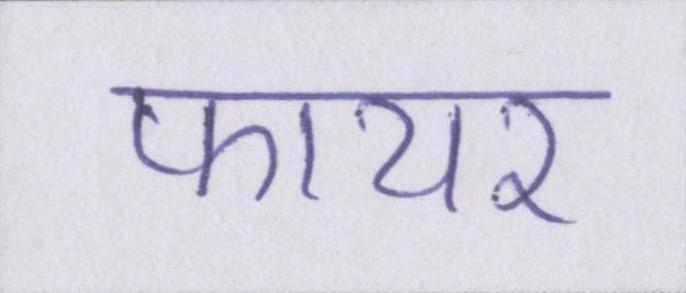 फायर